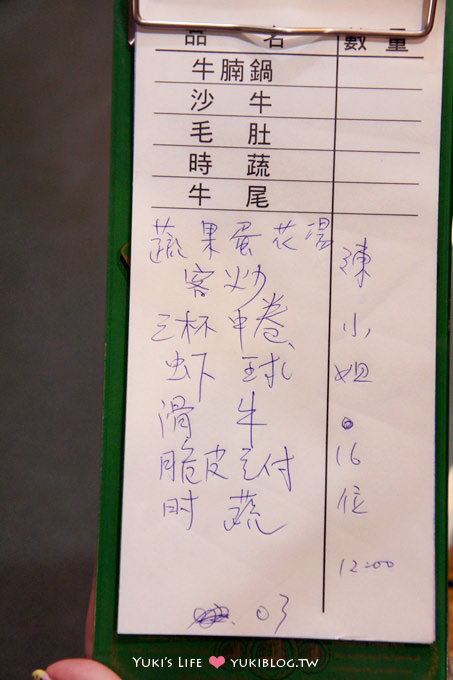 品 名 數 量
牛腩鍋
沙 牛
毛 肚
時 蔬
牛 尾
蔬果蛋花湯
客炒
三杯中卷
虾球
滑 牛
脆皮豆付
时 蔬
陳小姐
16位
12:00
03
YUKI'S LIFE ❤ YUKIBLOG.TW